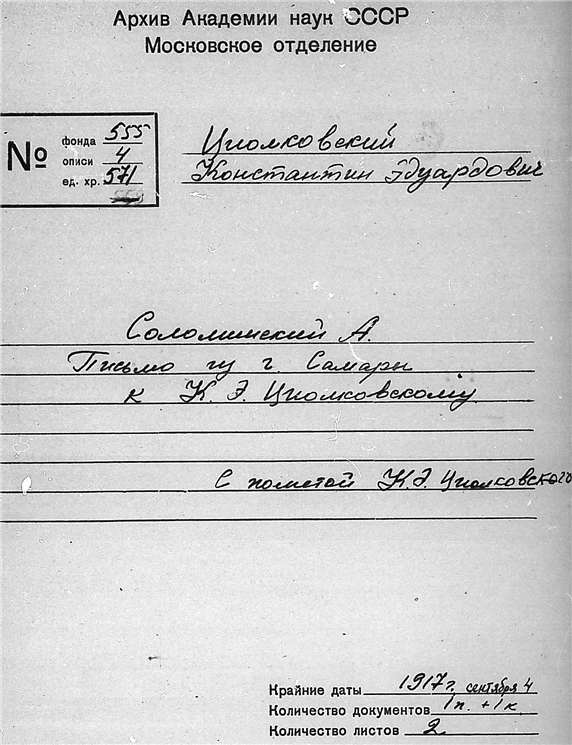 Архив Академии наук СССР
Московское отделение
№
фонда 555
описи 4
ед. хр. 571
Циолковский
Константин Эдуардович
Соломинский А.
Письмо из г. Самары
к К. Э. Циолковскому
С пометой К.Э. Циолковского
Крайние даты 1917 г. сентября 4
Количество документов 1 п. + 1 к.
Количество листов 2